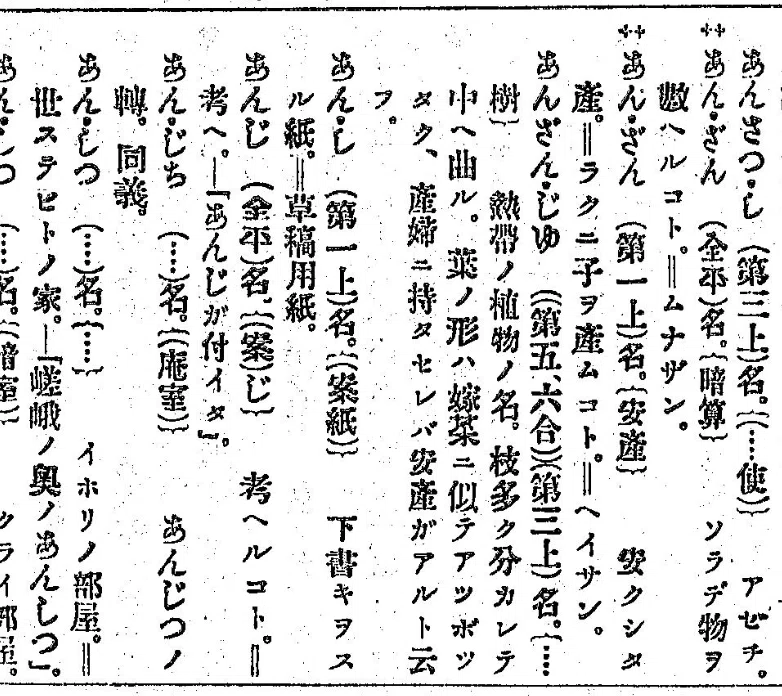 あんさつ・し (第三上)名。{……使} アゼチ。
あん・ざん (全平)名。{暗算} ソラデ物ヲ
數ヘルコト。=ムナザン。
あん・ざん (第一上)名。{安產} 安クシタ
產。=ラクニ子ヲ產ムコト。=ヘイサン。
あんざん・じゆ ((第五、六合)(第三上)名。{……
樹} 熱帶ノ植物ノ名。枝多ク分カレテ
中ヘ曲ル。葉ノ形ハ嫁菜ニ似テアツボツ
タク、產婦ニ持タセレバ安產ガアルト云
フ。
あん・し (第一上)名。{(案紙)} 下書キヲス
ル紙。=草稿用紙。
あんじ (全平)名、{(案)じ} 考ヘルコト。=
考ヘ。―「あんじが付イタ」。
あん・じち (……)名。{(庵室)} あんじつノ
轉。同義。
あん・しつ (……)名。{……} イホリノ部屋。=
世ステビトノ家。―「嵯峨ノ奧ノあんしつ」。
あん・しつ (……)名。{(暗室)} クライ部屋。